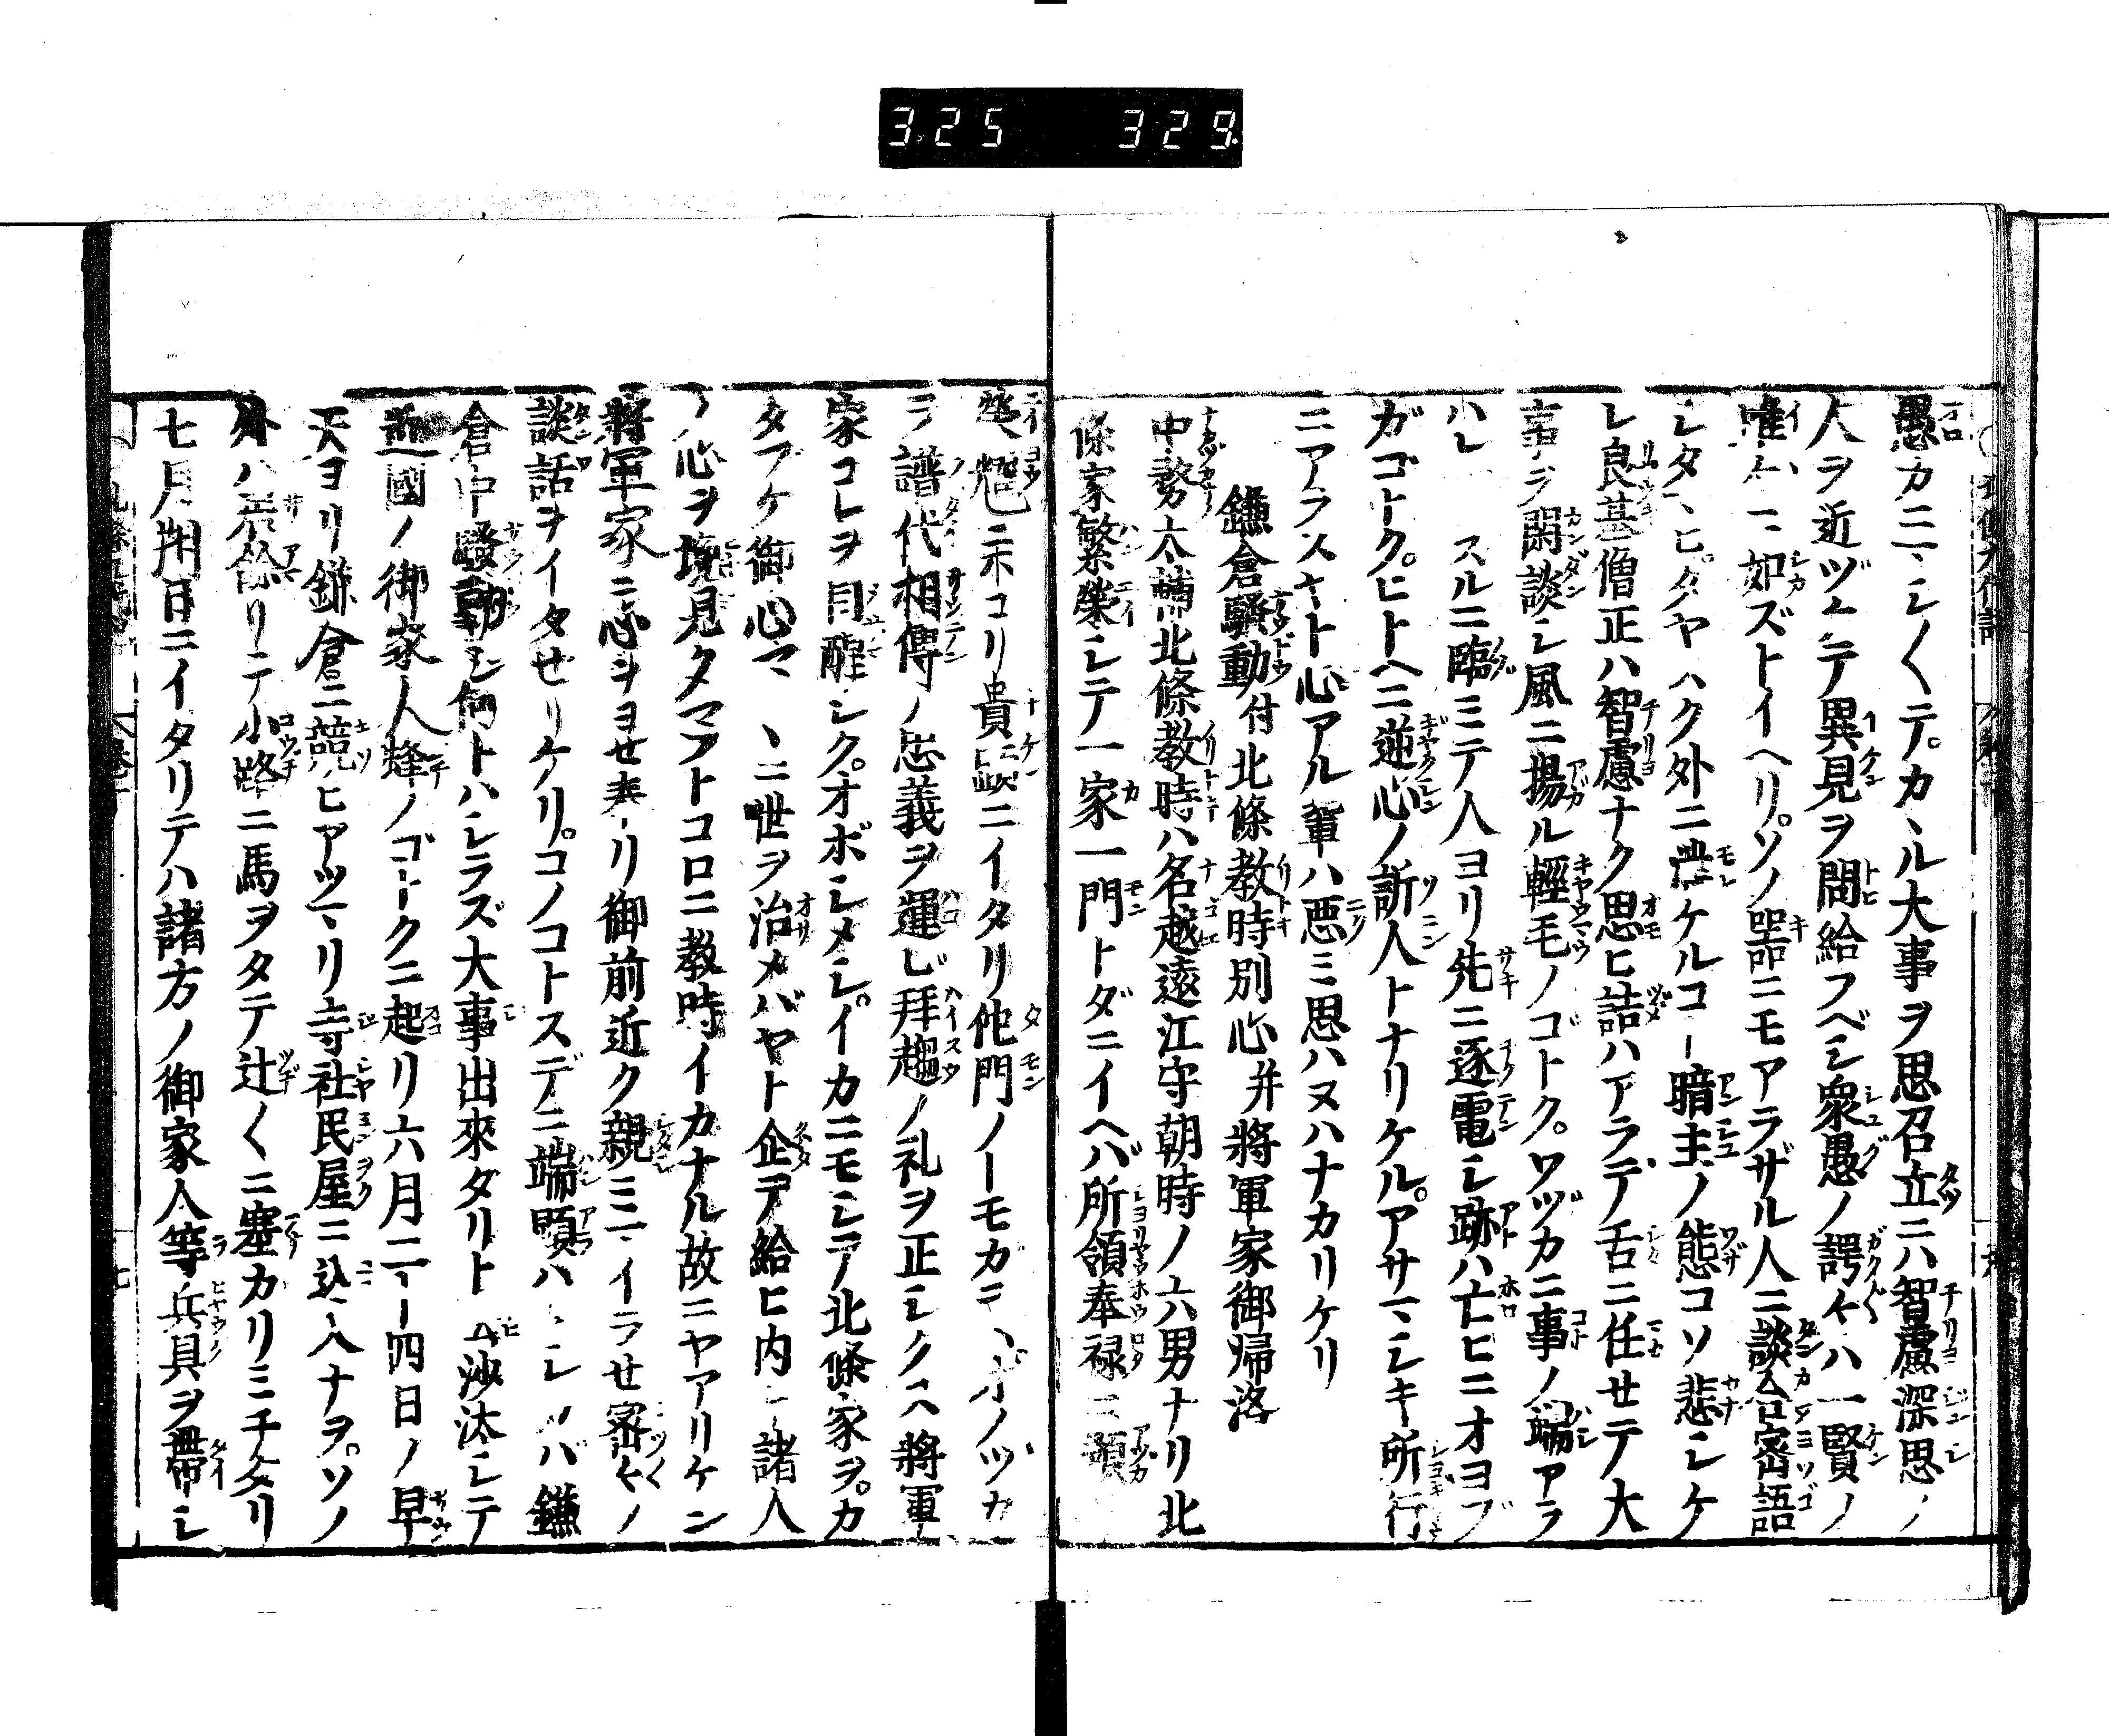 325 329
愚カニマシ〱テカヽル大事ヲ思召立ニハ智慮深思ノ
人ヲ近ヅケテ異見ヲ問給フベシ衆愚ノ諤々ハ一賢ノ
唯々ニハ如ズトイヘリソノ器ニモアラザル人ニ談合密語
シタマヒタヤハク外ニ漏ケルコト暗主ノ態コソ悲シケ
レ良基僧正ハ智慮ナク思ヒ詰ハアラデ舌ニ任セテ大
事ヲ閑談シ風ニ揚ル輕毛ノゴトクワヅカニ事ノ端アラ
ハレ スルニ臨ミテ人ヨリ先ニ逐電シ跡ハ亡ヒニオヨブ
ガゴトクヒトヘニ逆心ノ訴人トナリケルアサマシキ所行
ニアラスヤト心アル輩ハ悪ミ思ハヌハナカリケリ
鎌倉騒動付北條教時別心并將軍家御帰洛
中務太輔北條教時ハ名越遠江守朝時ノ六男ナリ北
條家繁榮シテ一家一門トダニイヘバ所領奉禄ニ預
榮耀ニホコリ貴ニイタリ他門ノモカニ、オノツカ
ラ譜代相傳ノ忠義ヲ運ビ拜趨ノ礼ヲ正シクス將軍
家コレヲ目醒シクオボシメシイカニモシテ北條家ヲカ
タフケ御心マヽニ世ヲ治メバヤト企テ給ヒ内々諸人
ノ心ヲ境見タマフトコロニ教時イカナル故ニヤアリケン
將軍家ニ心ヲヨセ奉リ御前近ク親ミマイラセ密々ノ
談話ヲイタセリケリコノコトスデニ端顕ハレシカバ鎌
倉中騒動シ何トハシラズ大事出來タリト沙汰シテ
近國ノ御家人蜂ノゴトクニ起リ六月二十四日ノ早
天ヨリ鎌倉ニ競ヒアツマリ寺社民屋ニ込入ナヲソノ
外ハ居餘リテ小路ニ馬ヲタテ辻〱ニ塞カリミチタリ
七月朔日ニイタリテハ諸方ノ御家人等兵具ヲ帶シ